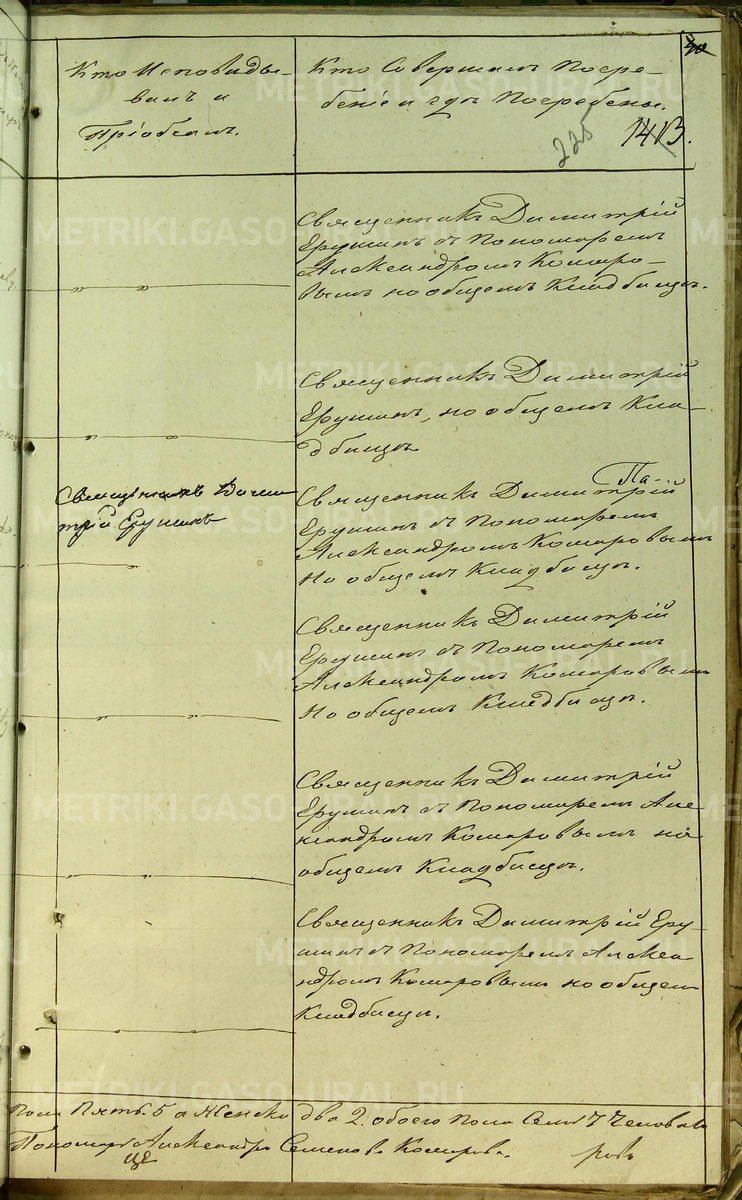 Кто Исповѣды-
валъ и
Пріобщалъ.
Кто Совершалъ Погре-
беніе и гдѣ Погребены.
225
Священникъ Димитрій
Ерушинъ съ Пономаремъ
Александромъ Комаро-
вымъ на общемъ Кладбищѣ.
Священникъ Димитрій
Ерушинъ, на общемъ Кла-
дбищѣ
Священникъ Дими
трій Ерушинъ
Священникъ Димитрій
Ерушинъ съ Пономаремъ
Александромъ Комаровымъ
на общемъ Кладбищѣ.
Священникъ Димитрій
Ерушинъ съ Пономаремъ
Александромъ Комаровымъ
На общемъ Кладбищѣ.
Священникъ Димитрій
Ерушинъ съ Пономаремъ Але
ксандромъ Комаровымъ на
общемъ Кладбищѣ.
Священникъ Димитрій Еру-
шинъ съ Пономаремъ Алекса
ндромъ Комаровымъ на общем
Кладбищѣ.
Пола Пять. 5 а Женска два 2. обоего Пола Семь 7 Человѣкъ
Пономарь Александръ Семеновъ Комаровъ.
METRIKI.GASO-URAL.RU